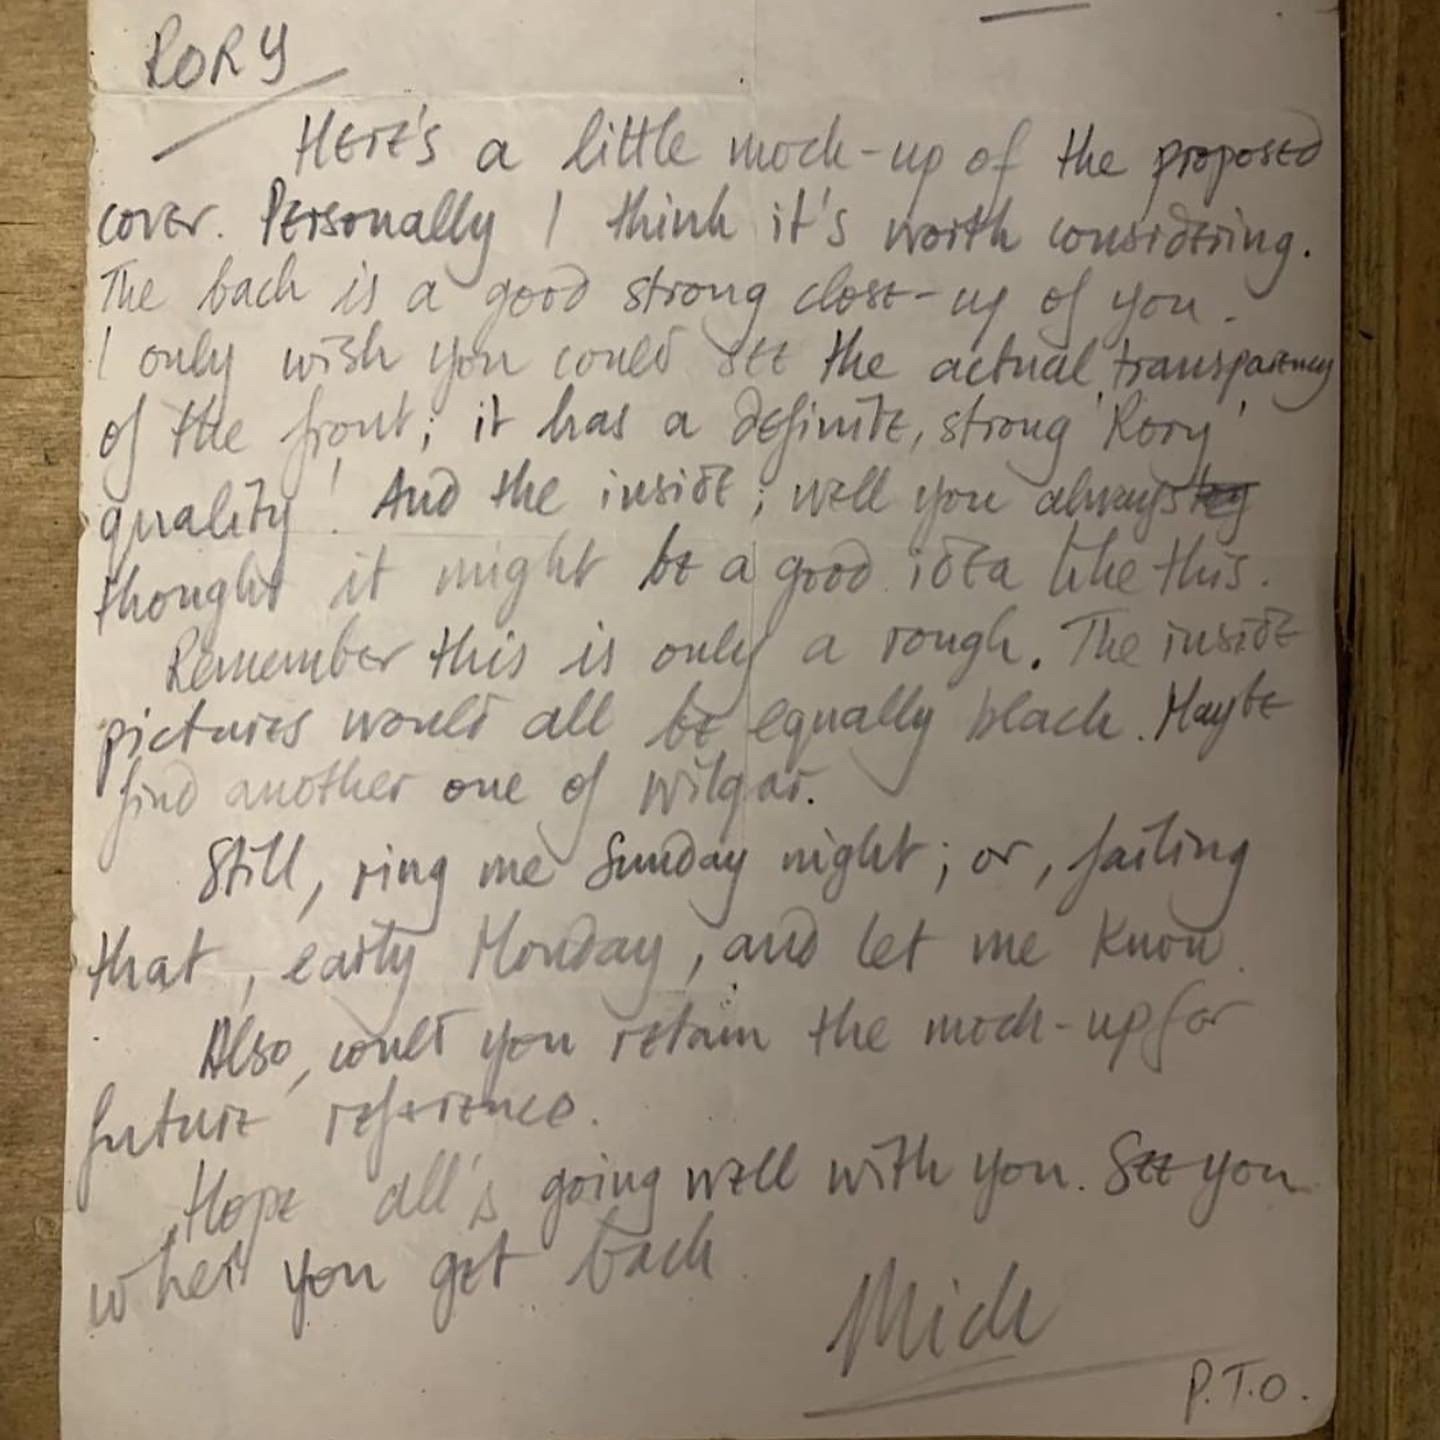 RORY
Here's a little mock-up of the proposed
cover. Personally I think it's worth considering.
The back is a good strong close-up of you.
I only wish you could see the actual transparency
of the front; it has a definite, strong 'Rory'
quality! And the inside; well you always
thought it might be a good idea like this.
Remember this is only a rough. The inside
pictures would all be equally black. Maybe
find another one of Wilgar.
Still, ring me Sunday night; or, failing
that, early Monday, and let me know.
Also, could you retain the mock-up for
future reference.
Hope all's going well with you. See you
when you get back.
Mick
P.T.O.